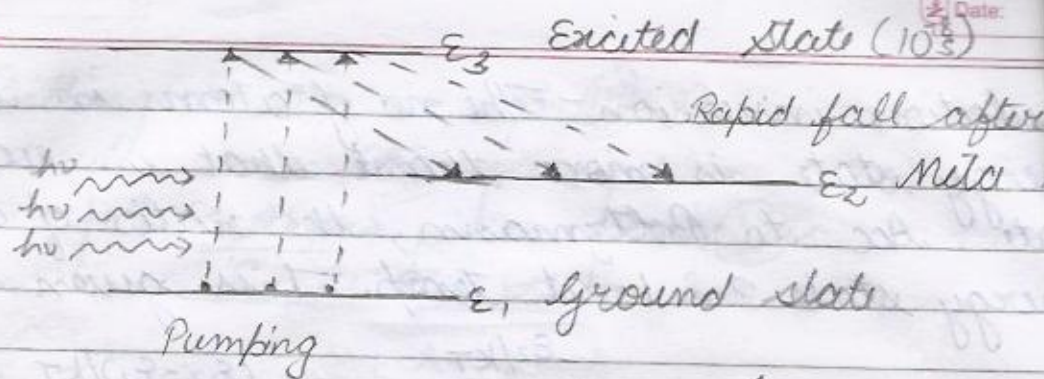 Date:
E3 Excited State (10⁻⁸s)
Rapid fall after
hν
E2 Meta
hν
hν
E1 Ground state
Pumping